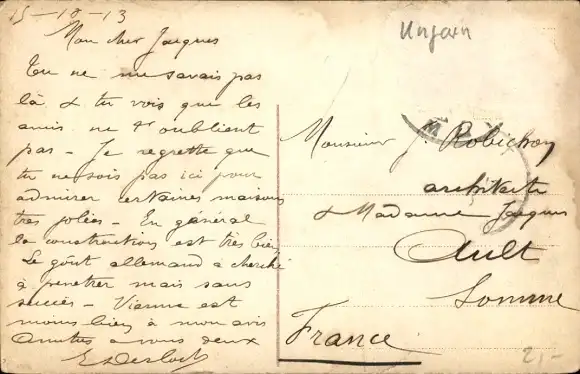 15-18-13
Mon cher Jacques
Tu ne me savais pas
là & tu vois que les
amis ne t'oublient
pas - Je regrette que
tu ne sois pas ici pour
admirer certaines maisons
très jolies - En général
la construction est très bien
Le goût allemand a cherché
à pénétrer mais sans
succès - Vienne est
moins bien à mon avis
Amitiés à vous deux
Ungarn
Monsieur J. Robichon
architecte
& Madame Jacques
Ault
Somme
France
2,-